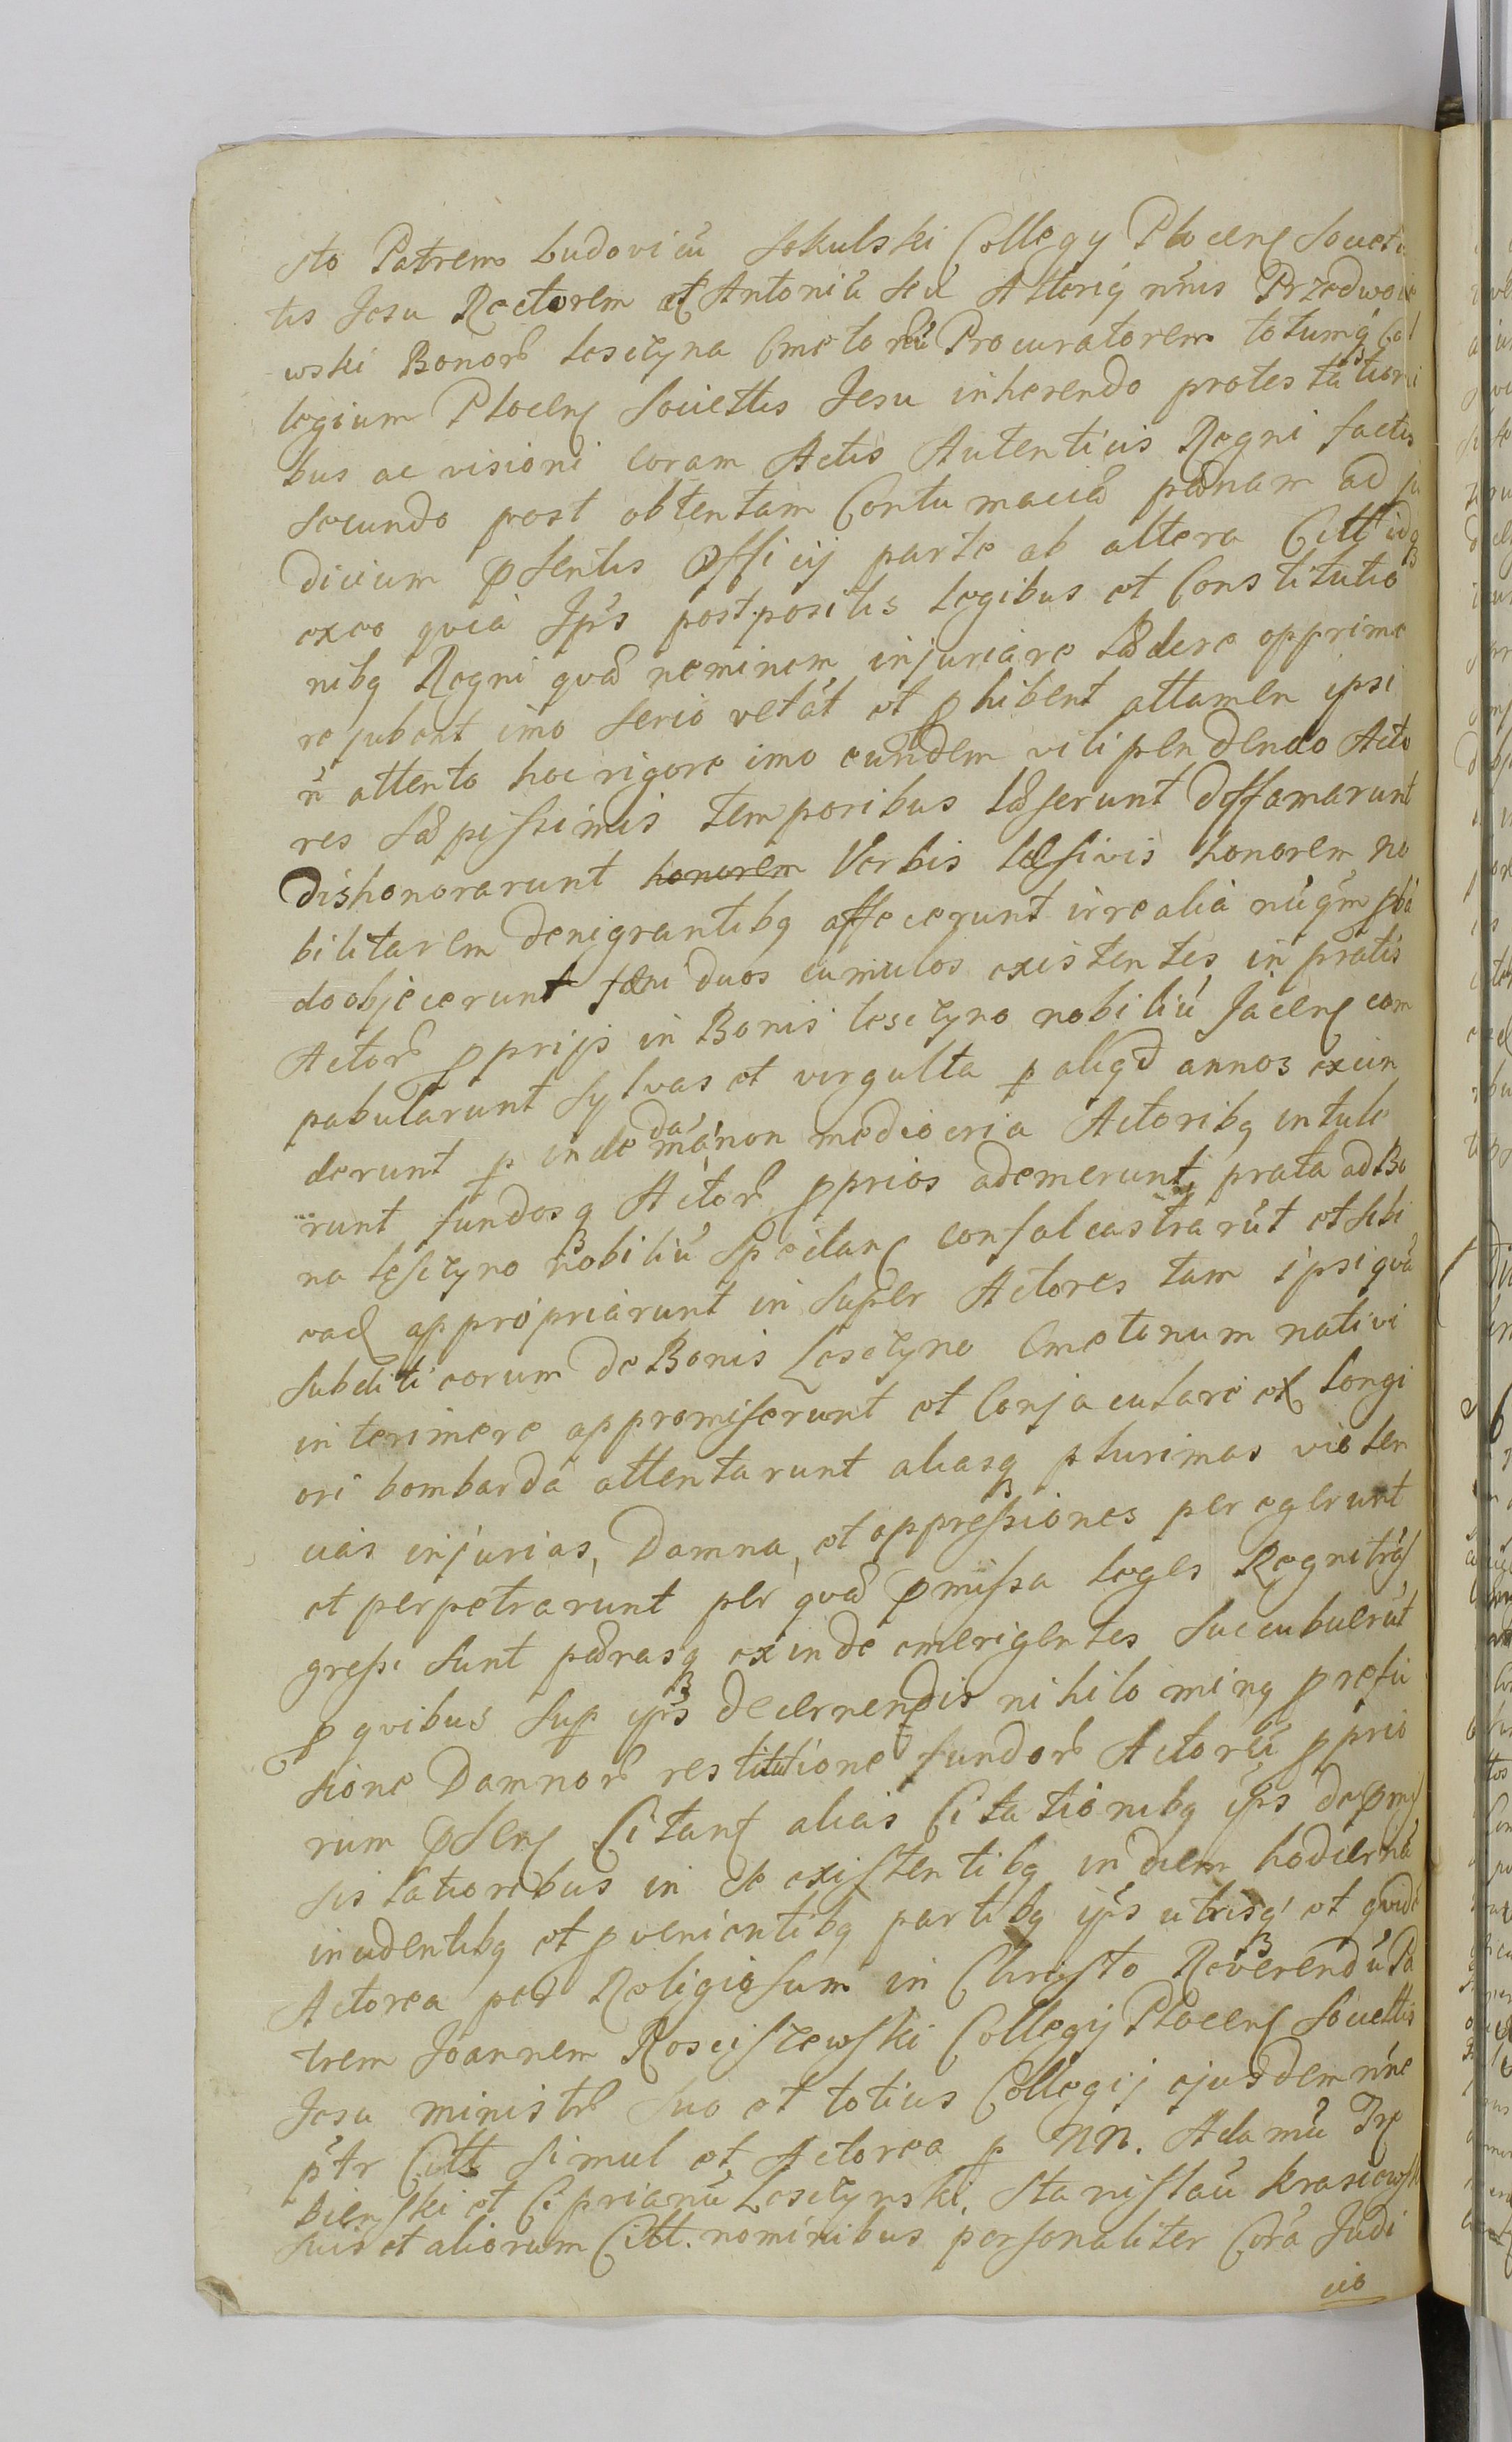 sto Patrem Ludovicu Sokulski Collegy Plocens Societa
tis Jesu Rectorem et Antoniu seu Alterig nmis Przedwoie
wski Bonor Leszczyna Cmetoru Procuratorem totumq Col
legium Plocens Societtis Jesu inherendo protestationi
bus ac visioni coram Actis Autenticis Regni factis
secundo post obtentam Contumaciæ pænam ad ju
dicium pñsentis Officij parte ab altera Citt idq
exeo quia Ips postpositis Legibus et Constitutio
nibg Regni quæ neminem injuriare lædere opprime
re jubent imo serio vetat et phibent attamen ipsi
n attento hoc rigore imo eundem vilipendendo Acto
res Sæpissimis temporibus læserunt diffamarunt
dishonorarunt honorem Verbis læsivis honorem no
bilitarem denigrantibg affecerunt irrealia nuqm pba
do objecerunt fæni duos cumulos existentes in pratis
Actor pprijs in Bonis Leszczyno nobiliu Jacens com
pabularunt Sylvas et virgulta p aliqd annos excin
derunt p inde dana non mediocria Actoribg intule
runt fundosq Actor pprios ademerunt, prata ad Bo
na Leszczyno nobiliu Spectan confalcastrarut et sibi
ead appropriarunt in super Actores tam ipsi qua
Subditi eorum de Bonis Leszczyno Cmetonum nativi
interimere appromiserunt et Conjaculare ex Longi
ori bombarda attentarunt aliasq plurimas violen
cias injurias, Damna, et oppressiones peregerunt
et perpetrarunt per quæ pmissa leges Regni trás
gressi sunt pænasq exinde emerigentes Succubuerut
p quibus sup ips decernendis nihilo ming prefu
sione Damnor restitutione fundor Actoru pprio
rum pñsens Citans alias Citationibg ips de pmis
sis latioribus in se existentibg in diem hodierna
incidentibg et pvenientibg partibg ips utrisq et quide
Actorea per Religiosum in Christo Reverendu Pa
trem Joannem Rosciszewski Collegij Plocens Societtis
Jesu ministr Suo et totius Collegij ejusdem nne
ptr Citt simul et Actorea p NN. Adamu Trę
bienski et Ciprianu Leszczynski, Stanislau Krasiewsk
Suis et aliorum Citt. nominibus personaliter Cora Judi
cio